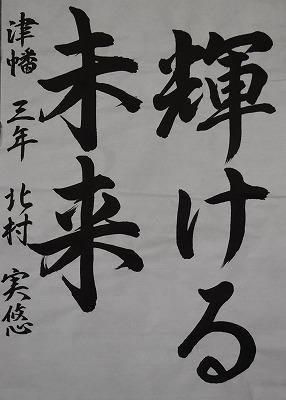 輝ける
未来
津幡 三年 北村 実悠